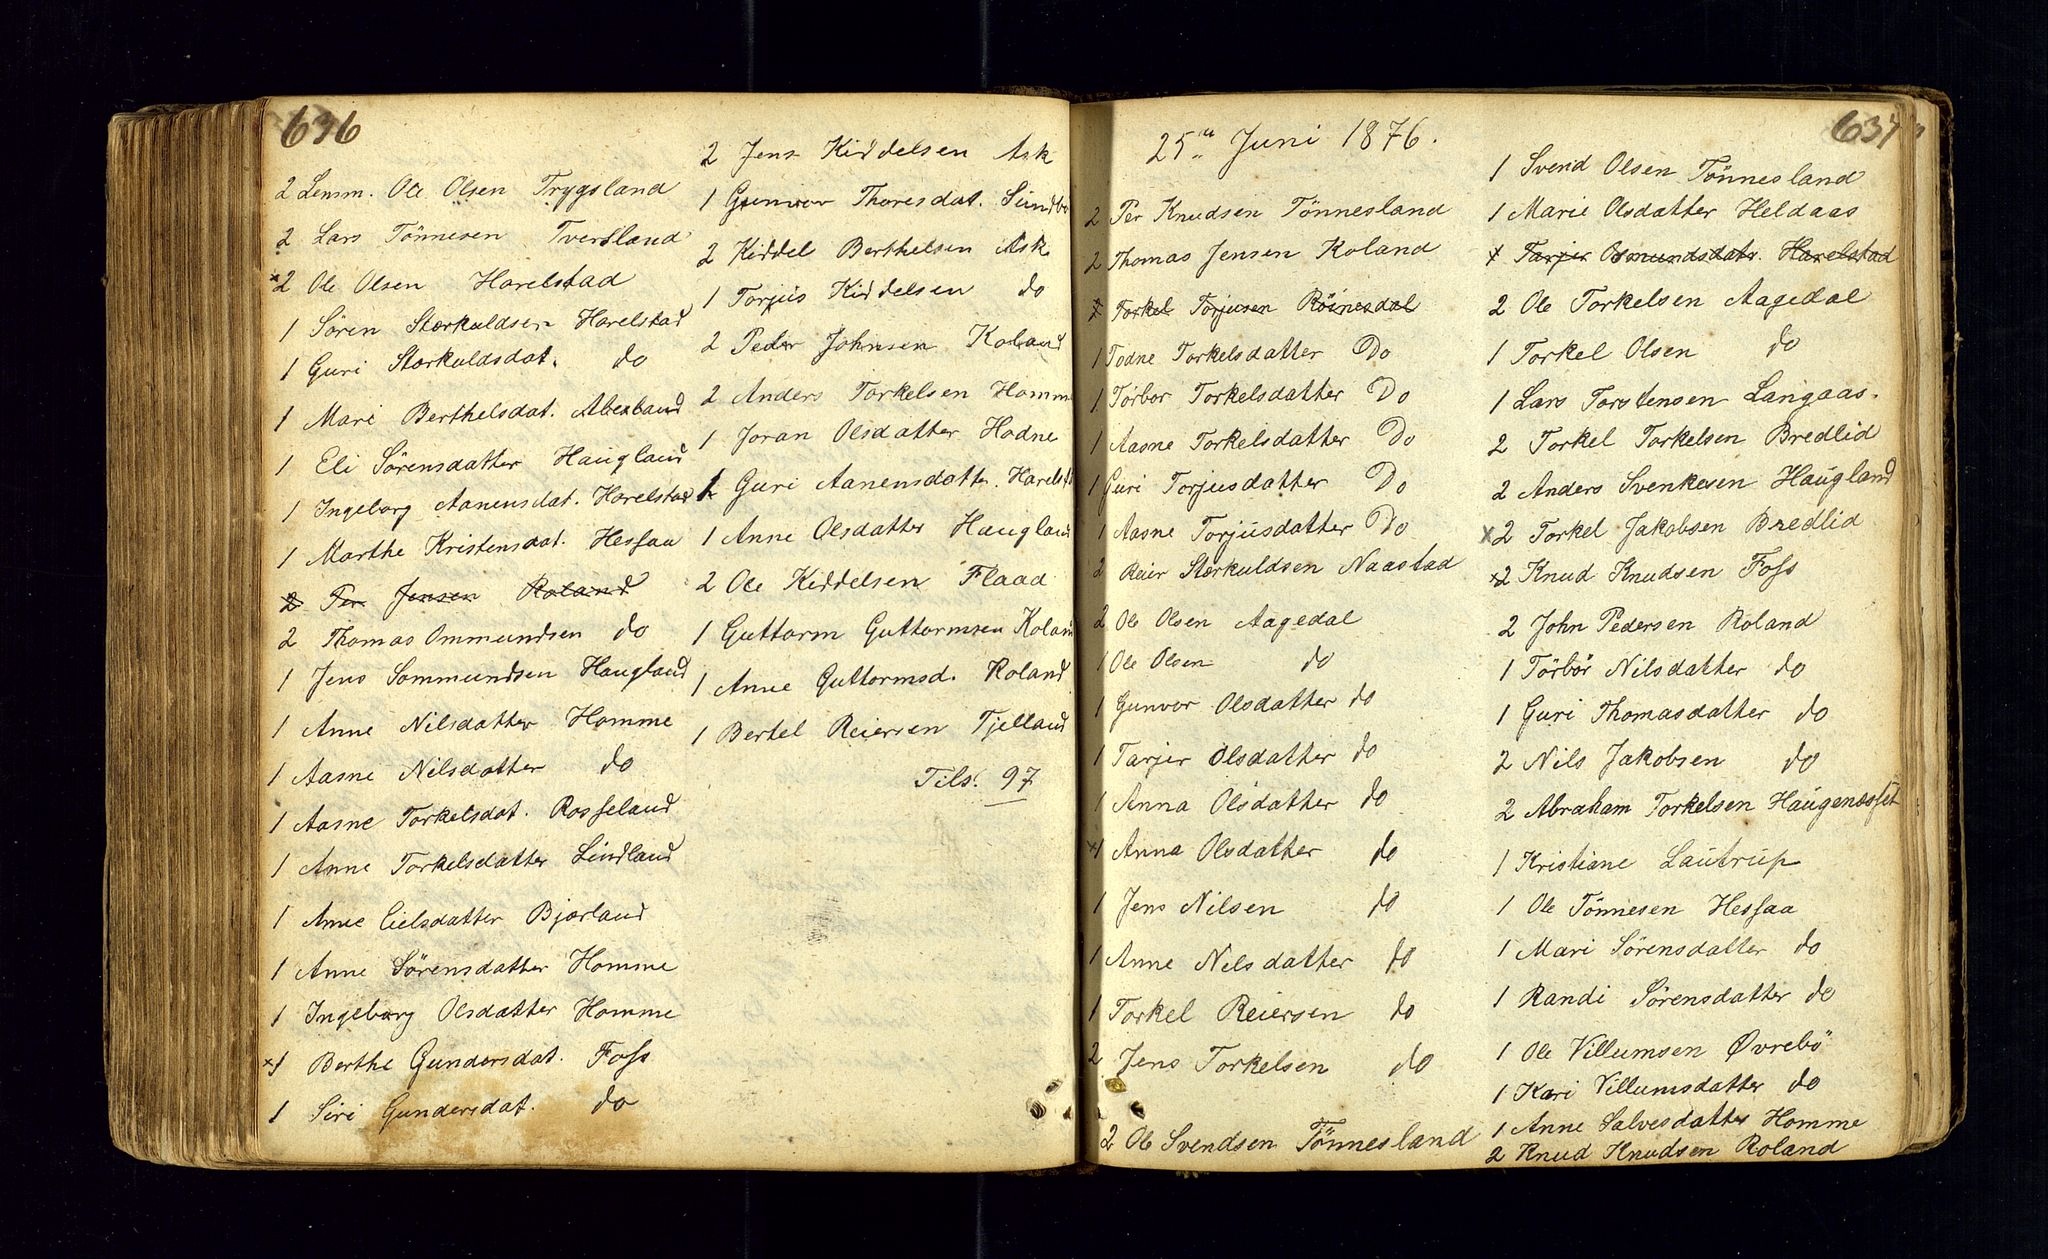 636
2 Lensm. Ole Olsen Trygsland
2 Lars Tönnesen Tverland
×2 Ole Olsen Harelstad
1 Sören Stærkuldsen Harelstad
1 Guri Stærkuldsdat. do
1 Mari Berthelsdat. Abeland
1 Eli Sörensdatter Haugland
1 Ingeborg Aanensdat. Harelstad
1 Marthe Kristensdat. Hessaa
2 Per Jensen Roland
2 Thomas Ommundsen do
1 Jens Sommundsen Haugland
1 Anne Nilsdatter Homme
1 Aasne Nilsdatter do
1 Aasne Torkelsdat. Rosseland
1 Anne Torkelsdatter Lindland
1 Anne Eielsdatter Bjærland
1 Anne Sörensdatter Homme
1 Ingeborg Olsdatter Homme
×1 Berthe Gundersdat. Foss
1 Siri Gundersdat. do
2 Jens Kiddelsen Ask
1 Gunvor Thoresdat. Sundbö
2 Kiddel Berthelsen Ask
1 Torjus Kiddelsen do
2 Peder Johnsen Roland
2 Anders Torkelsen Homme
1 Joran Olsdatter Hodne
1 Guri Aanensdatter. Harelst
1 Anne Olsdatter Haugland
2 Ole Kiddelsen Flaad
1 Guttorm Guttormsen Roland
1 Anne Guttormsd. Roland
1 Bertel Reiersen Tjelland
Tils. 97
637
25de Juni 1876.
2 Per Knudsen Tönnesland
2 Thomas Jensen Roland
2 Torkel Torjusen Röinesdal
1 Todne Torkelsdatter Do
1 Törbor Torkelsdatter Do
1 Aasne Torkelsdatter Do
1 Guri Torjusdatter Do
1 Aasne Torjusdatter Do
2 Reier Stærkuldsen Naastad
2 Ole Olsen Aagedal
1 Ole Olsen do
1 Gunvor Olsdatter do
1 Tarjer Olsdatter do
1 Anna Olsdatter do
×1 Anna Olsdatter do
1 Jens Nilsen do
1 Anne Nilsdatter do
1 Torkel Reiersen do
2 Jens Torkelsen do
2 Ole Svendsen Tönnesland
1 Svend Olsen Tönnesland
1 Marie Olsdatter Heldaas
1 Tarjer Osmundsdatr. Harelstad
2 Ole Torkelsen Aagedal
1 Torkel Olsen do
1 Lars Torstensen Langaas.
2 Torkel Torkelsen Bredlid
2 Anders Svenkesen Haugland
×2 Torkel Jakobsen Bredlid
×2 Knud Knudsen Foss
2 John Pedersen Roland
1 Törbör Nilsdatter do
1 Guri Thomasdatter do
2 Nils Jakobsen do
2 Abraham Torkelsen Haugenæsset
1 Kristiane Lautrup
1 Ole Tönnesen Hessaa
1 Mari Sörensdatter do
1 Randi Sörensdatter do
1 Ole Villumsen Øvrebö
1 Kari Villumsdatter do
1 Anne Salvesdatter Homme
2 Knud Knudsen Roland